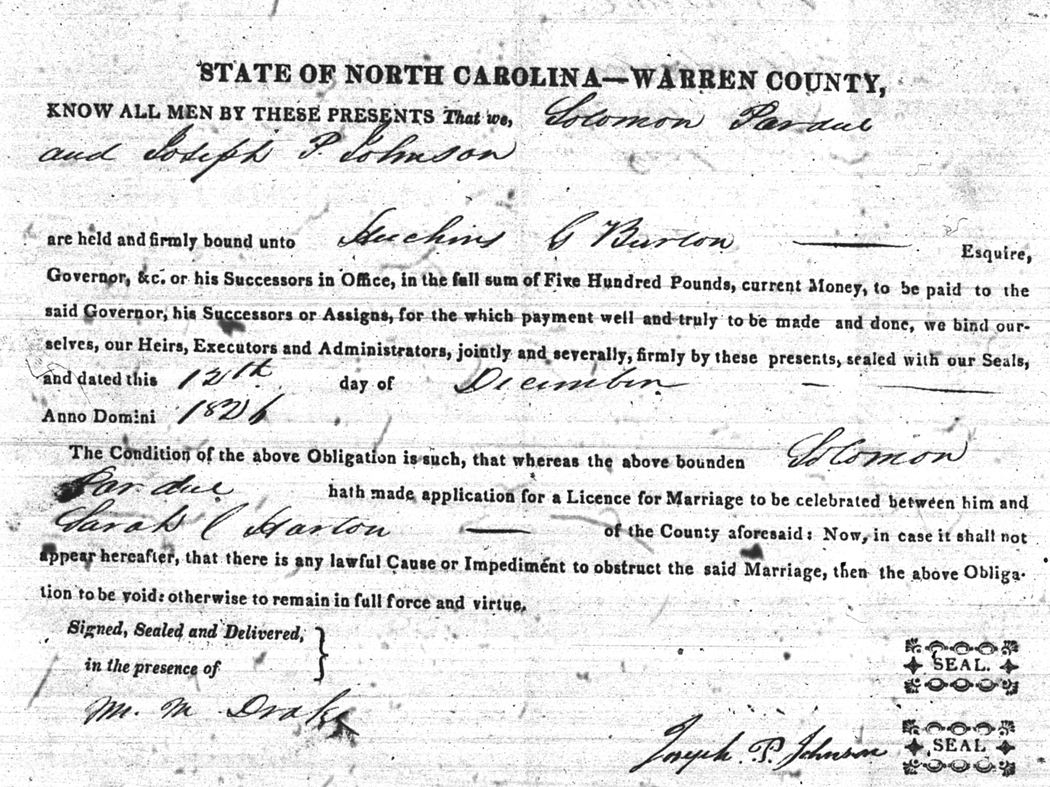 STATE OF NORTH CAROLINA—WARREN COUNTY,
KNOW ALL MEN BY THESE PRESENTS That we, Solomon Pardue
and Joseph P. Johnson
are held and firmly bound unto Huchins G Burton — Esquire,
Governor, &c. or his Successors in Office, in the full sum of Five Hundred Pounds, current Money, to be paid to the
said Governor, his Successors or Assigns, for the which payment well and truly to be made and done, we bind our-
selves, our Heirs, Executors and Administrators, jointly and severally, firmly by these presents, sealed with our Seals,
and dated this 12th day of December — —
Anno Domini 1826
The Condition of the above Obligation is such, that whereas the above bounden Solomon
Pardue hath made application for a Licence for Marriage to be celebrated between him and
Sarah C Harton — of the County aforesaid: Now, in case it shall not
appear hereafter, that there is any lawful Cause or Impediment to obstruct the said Marriage, then the above Obliga-
tion to be void: otherwise to remain in full force and virtue.
Signed, Sealed and Delivered,
in the presence of
SEAL.
M. M Drake
Joseph P. Johnson SEAL